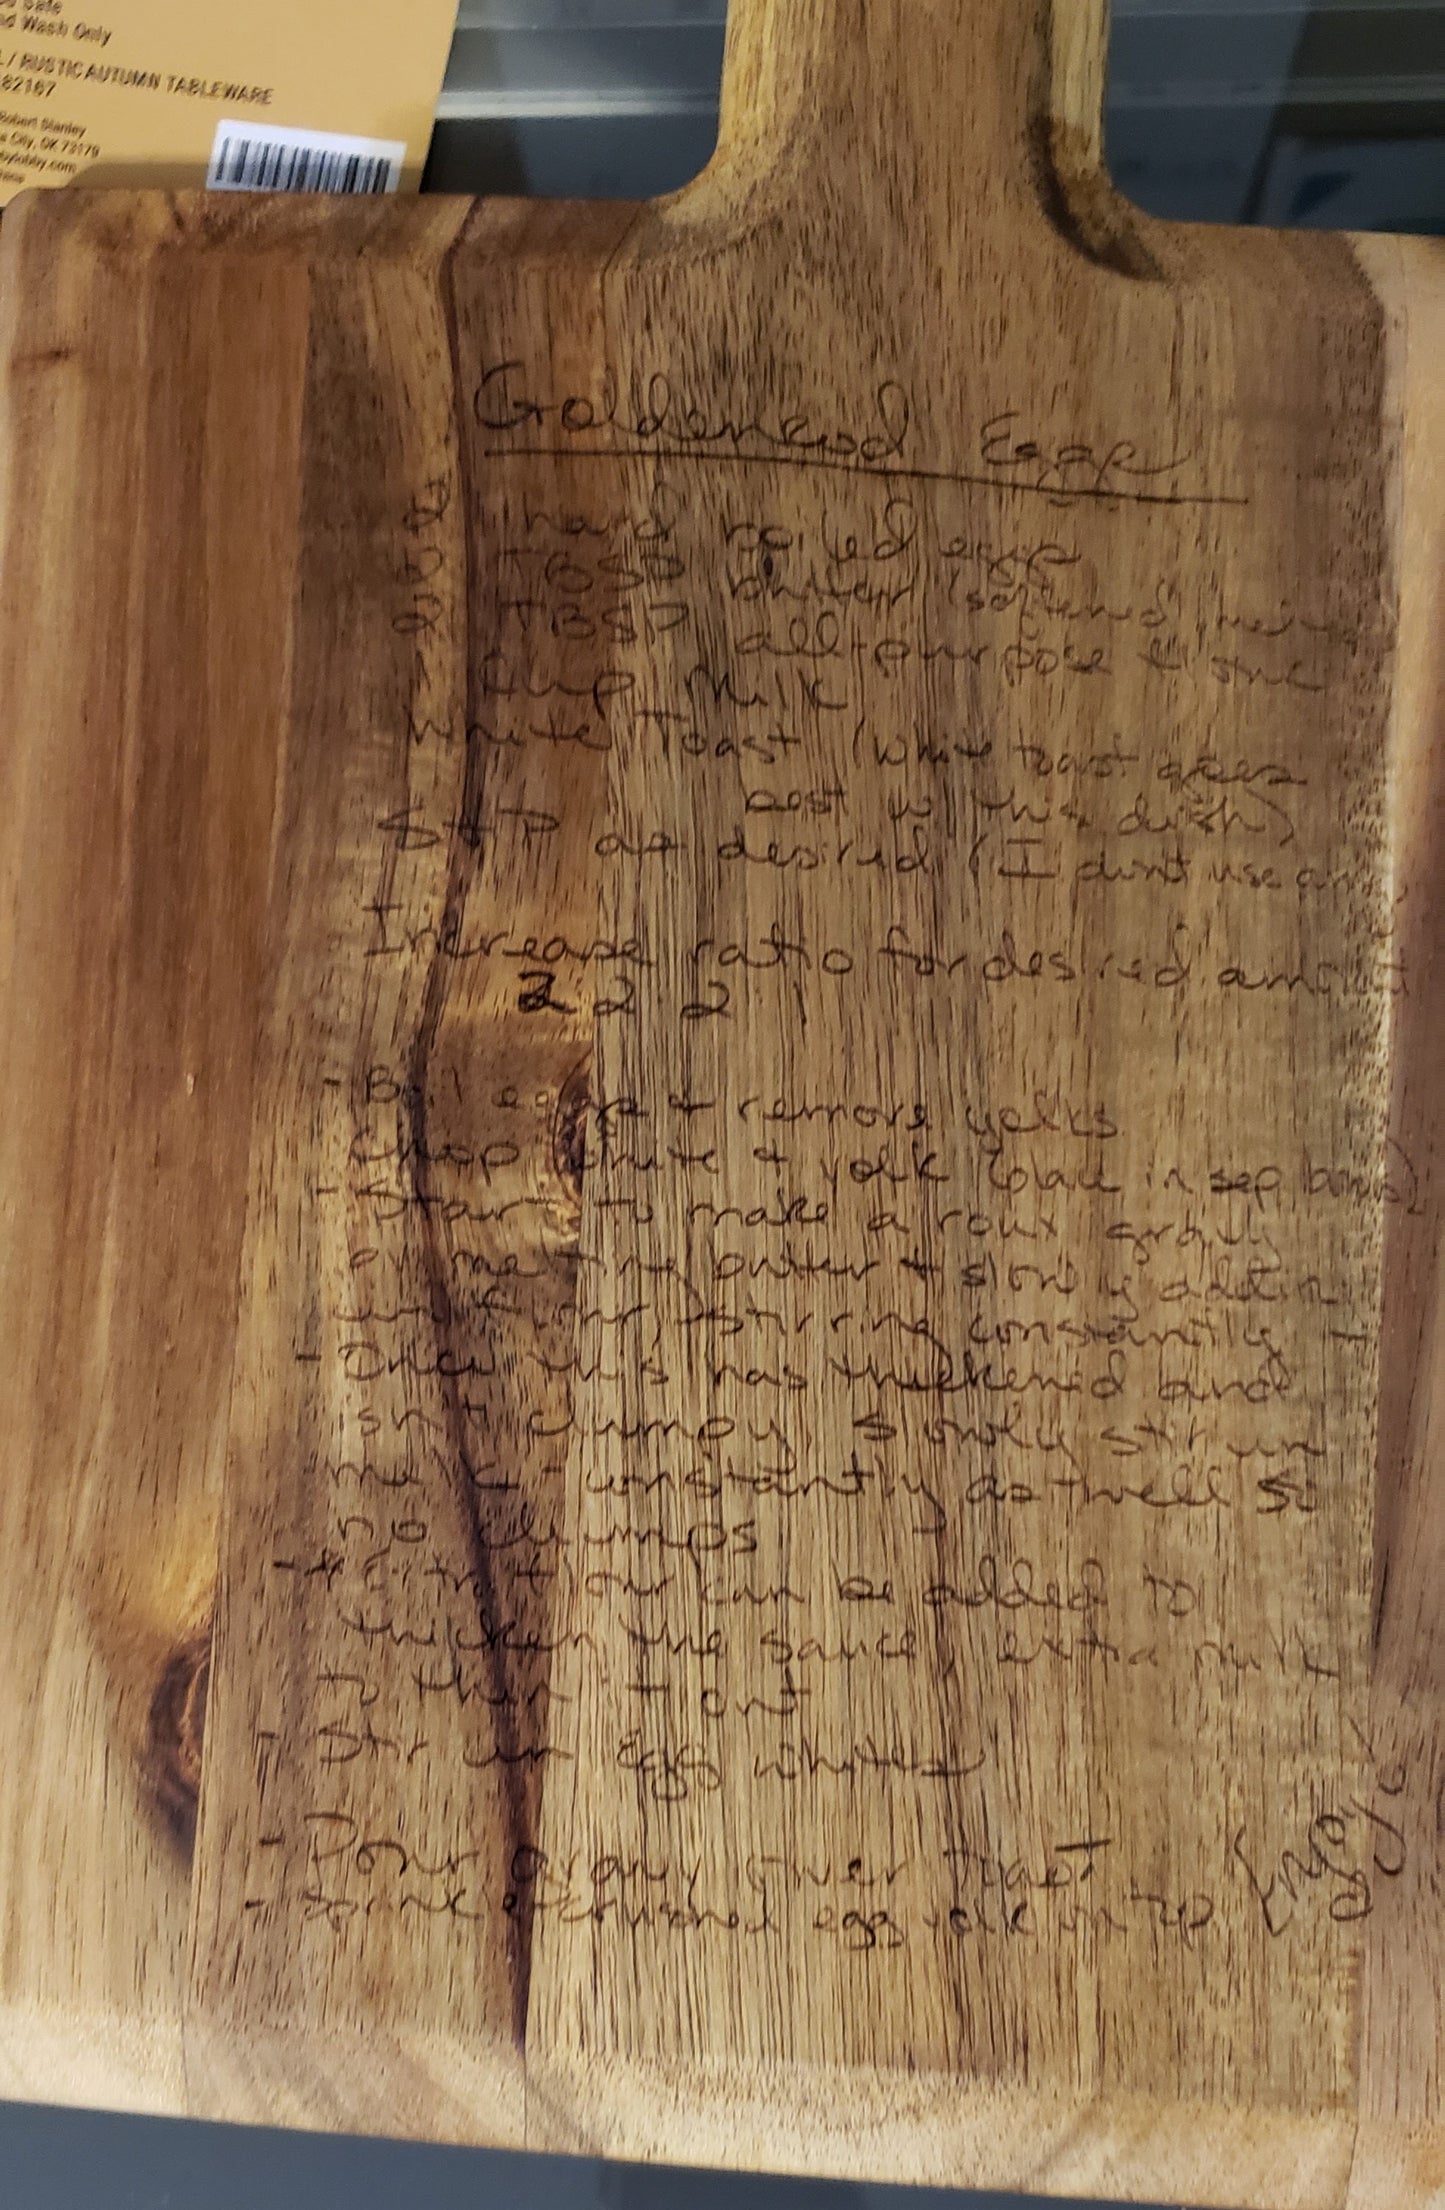 Safe
nd Wash Only
L / RUSTIC AUTUMN TABLEWARE
82167
Robert Stanley
City, OK 73179
Goldenrod Eggs
2 hard boiled eggs
2 TBSP butter (softened
2 TBSP all-purpose flour
1 Cup Milk
White Toast (white toast goes
best w/ this dish)
S+P as desired (I don't use any
Increase ratio for desired amount
2 2 2 1
- Boil eggs + remove yolks
Chop white + yolk (place in sep bowls)
- Start to make a roux gravy
by melting butter + slowly adding
in flour, stirring constantly
- Once this has thickened and
isn't clumpy, slowly stir in
milk - constantly as well so
no clumps
- * Extra flour can be added to
thicken the sauce, extra milk
to thin it out
- Stir in Egg whites
- Pour gravy over toast
- Sprinkle crumbled egg yolk on top
Enjoy!